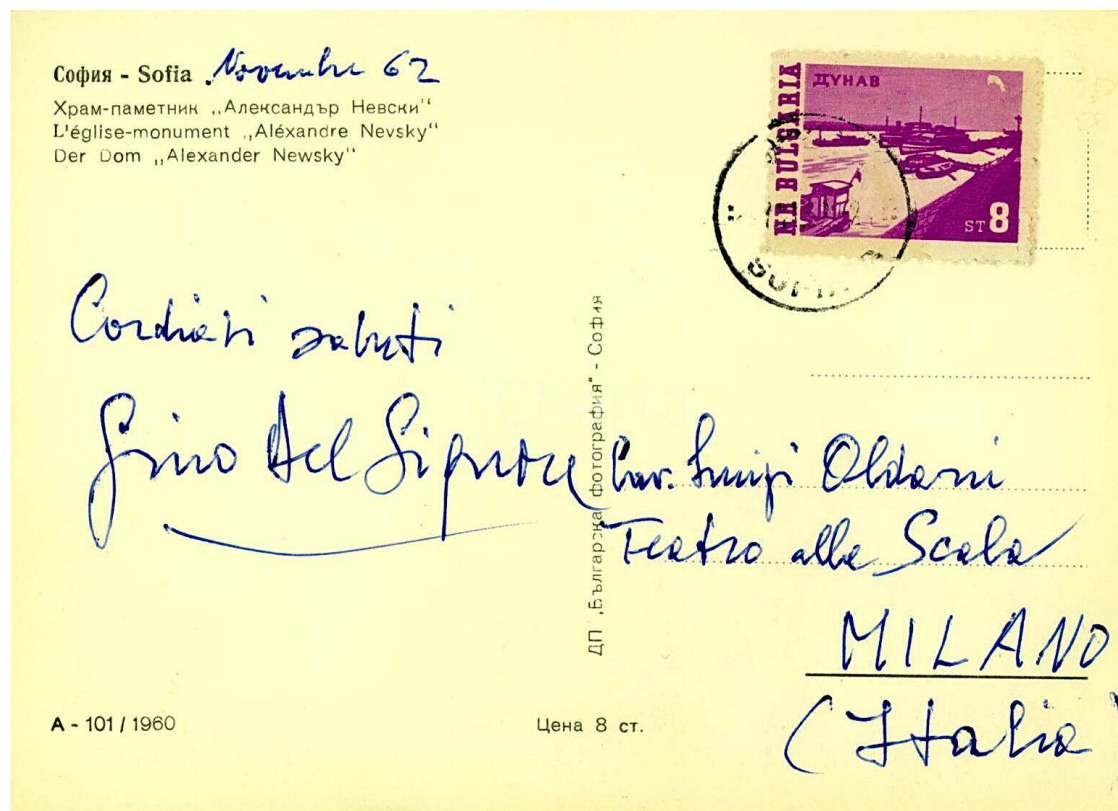 София - Sofia Novembre 62
Храм-паметник „Александър Невски"
L'église-monument „Aléxandre Nevsky"
Der Dom „Alexander Newsky"
HR BULGARIA
ДУНАВ
ST 8
SOFIA
Cordiali saluti
Gino Del Signore
ДП „Българска фотография" - София
Cav. Luigi Oldani
Teatro alla Scala
MILANO
(Italia)
А - 101 / 1960
Цена 8 ст.